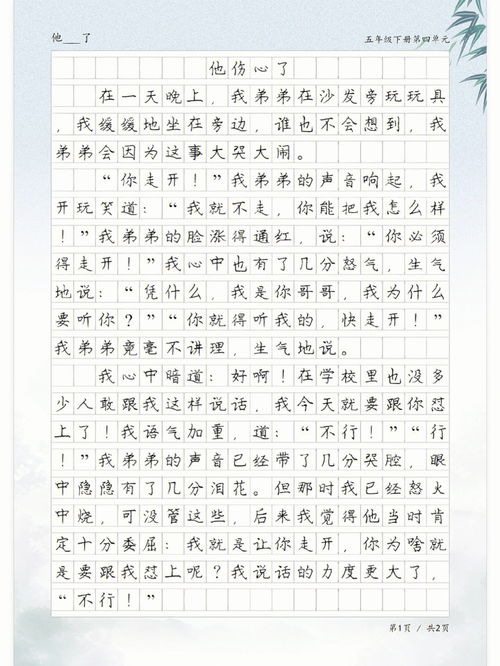 他___了
五年级下册第四单元
他伤心了
在一天晚上，我弟弟在沙发旁玩玩具
，我缓缓地坐在旁边，谁也不会想到，我
弟弟会因为这事大哭大闹。
“你走开！”我弟弟的声音响起，我
开玩笑道：“我就不走，你能把我怎么样
！”我弟弟的脸涨得通红，说：“你必须
得走开！”我心中也有了几分怒气，生气
地说：“凭什么，我是你哥哥，我为什么
要听你？”“你就得听我的，快走开！”
我弟弟竟毫不讲理，生气地说。
我心中暗道：好啊！在学校里也没多
少人敢跟我这样说话，我今天就要跟你怼
上了！我语气加重，道：“不行！”“行
！”我弟弟的声音已经带了几分哭腔，眼
中隐隐有了几分泪花。但那时我已经怒火
中烧，可没管这些，后来我觉得他当时肯
定十分委屈：我就是让你走开，你为啥就
是要跟我怼上呢？我说话的力度更大了，
“不行！”
第1页 / 共2页